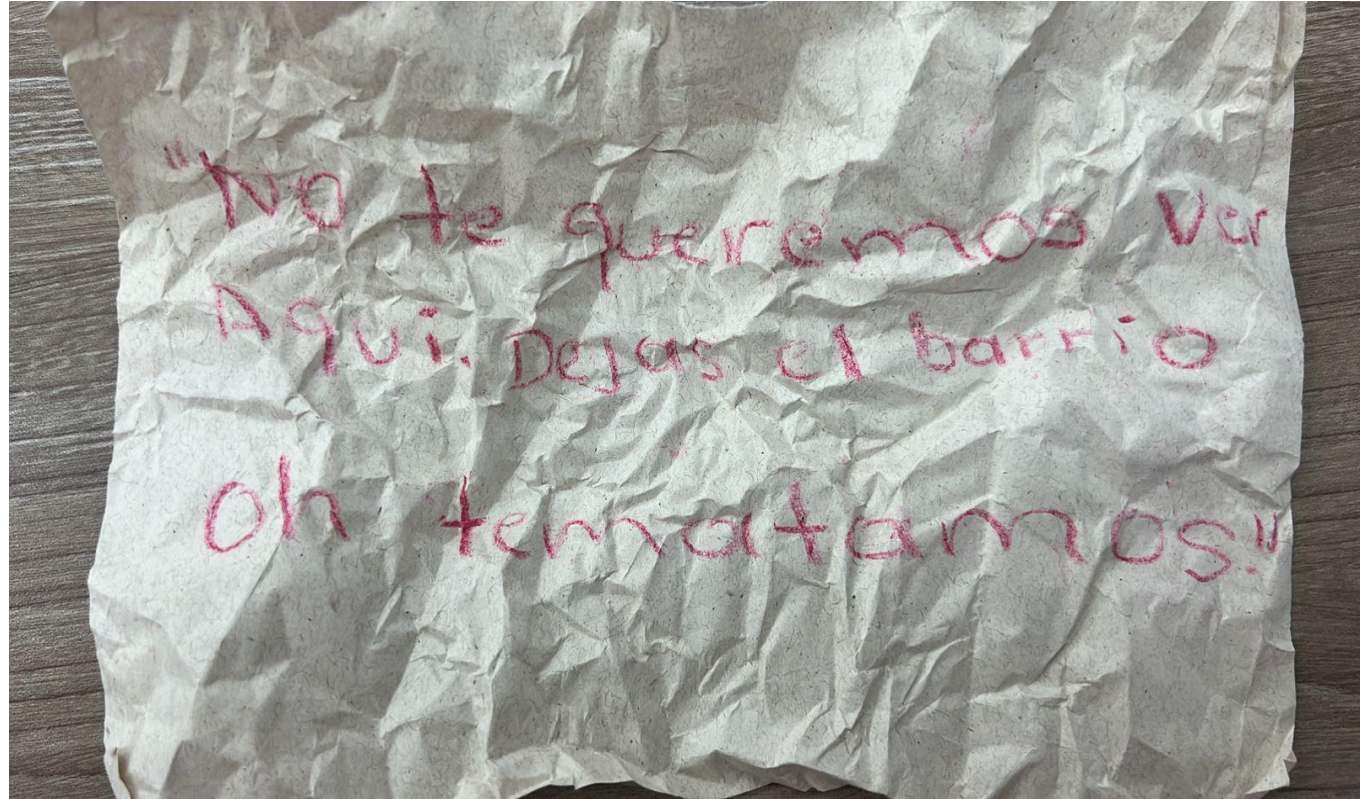 "No te queremos ver
Aqui. Dejas el barrio
oh tematamos!"